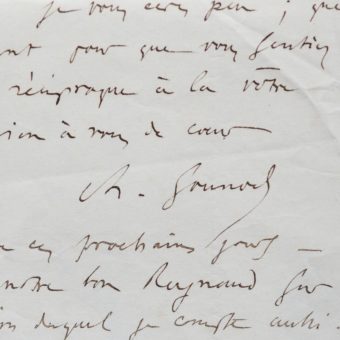 je vous écris peu ; que
pour que vous sentiez
réciproque à la vôtre
à vous de cœur
Ch. Gounod
ces prochains jours —
notre bon Reynaud sur
duquel je compte aussi.